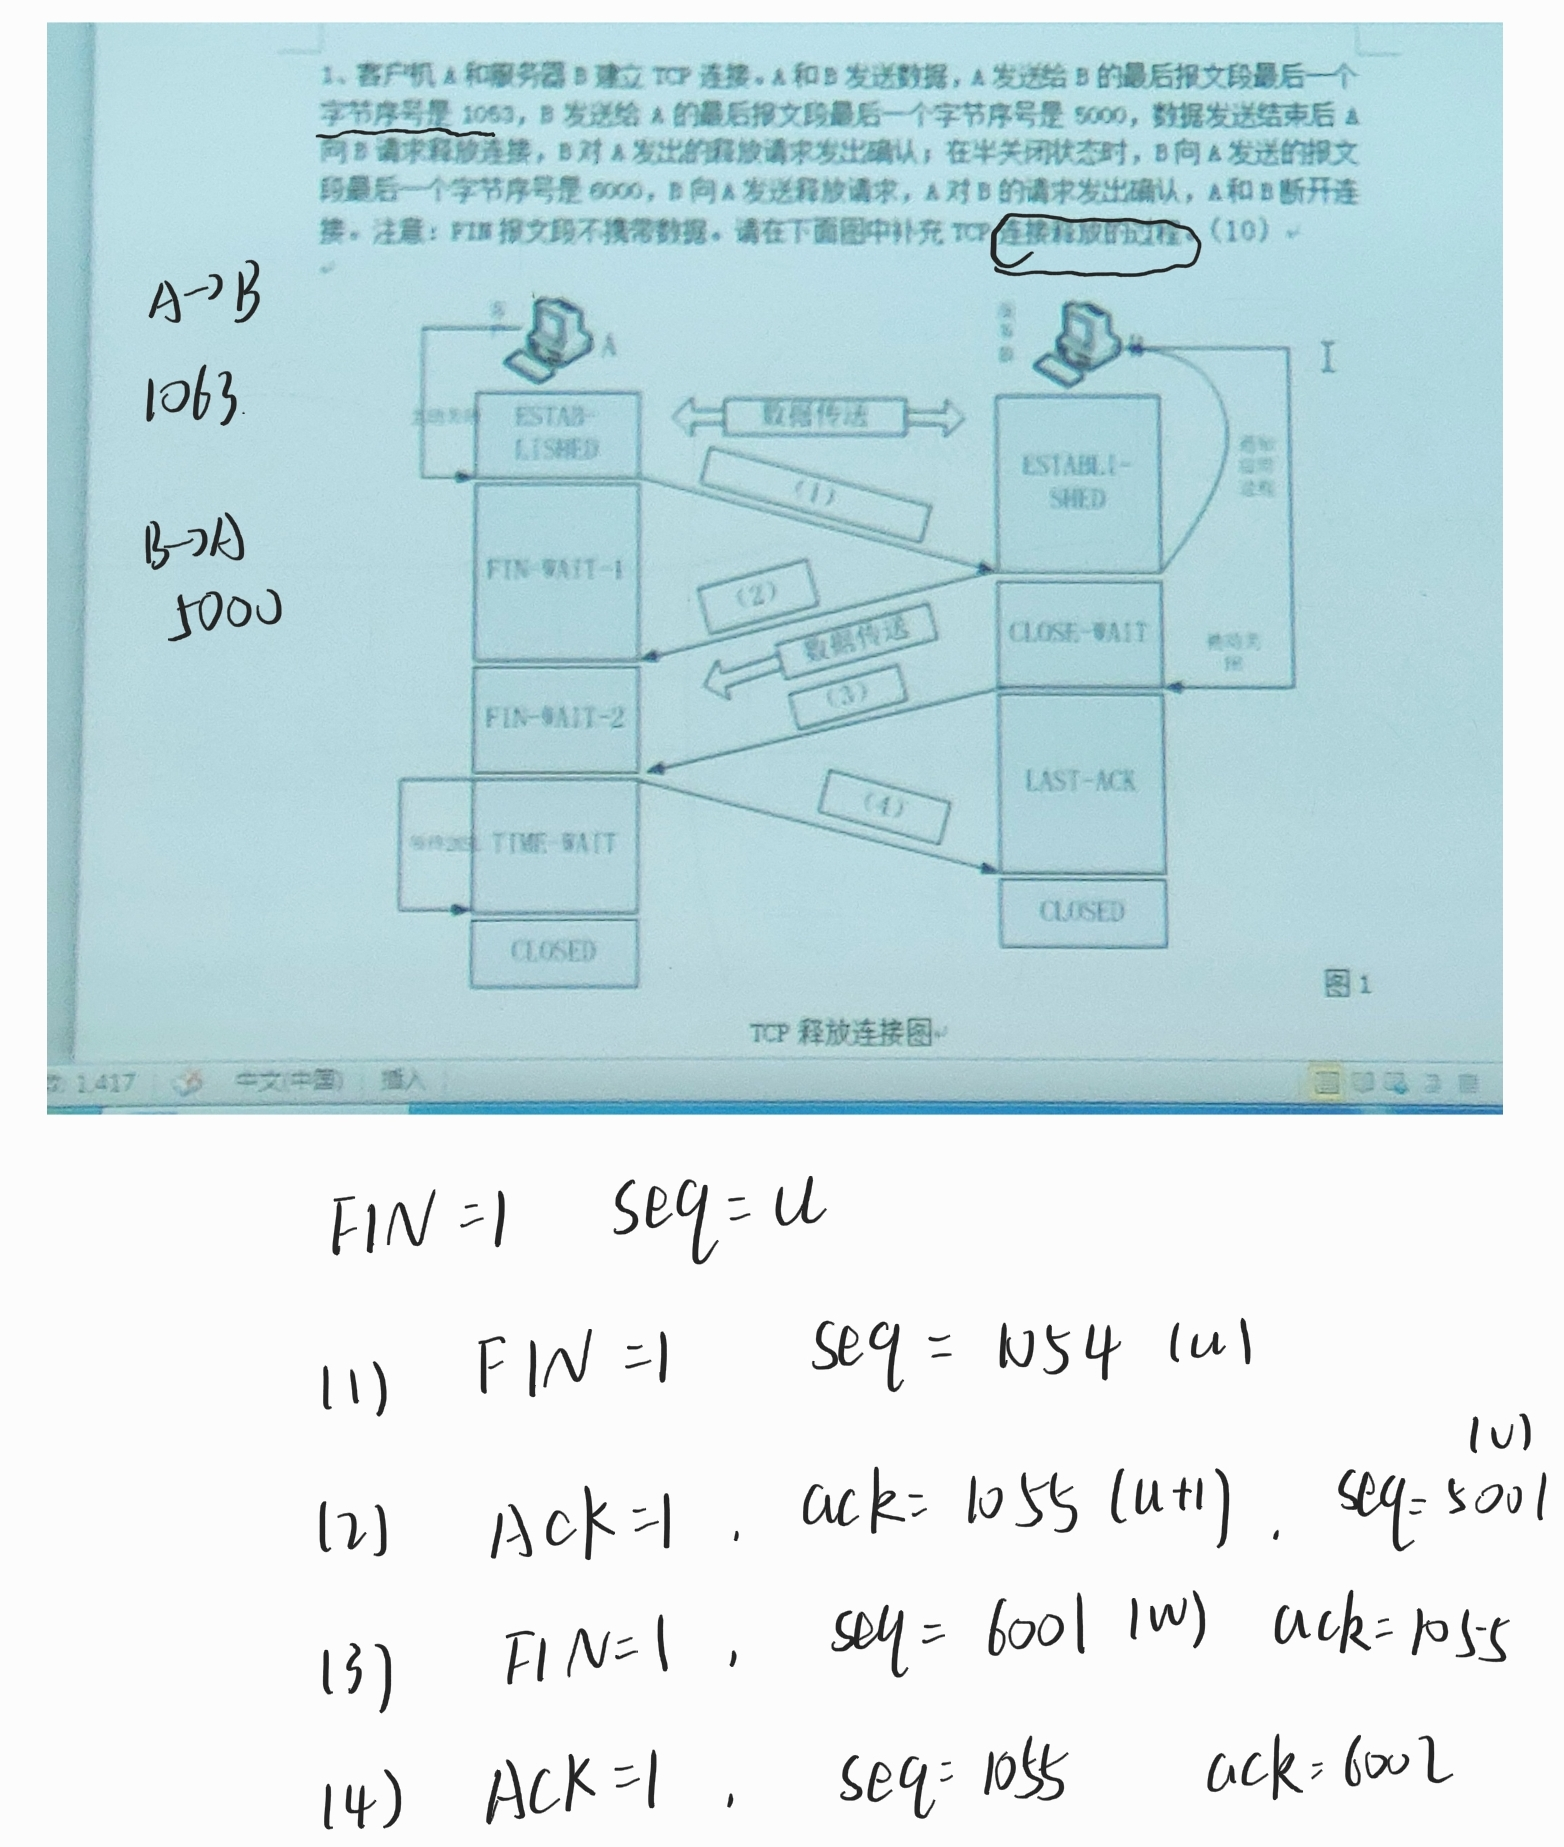 1、客户机 A 和服务器 B 建立 TCP 连接。A 和 B 发送数据，A 发送给 B 的最后报文段最后一个
字节序号是 1053，B 发送给 A 的最后报文段最后一个字节序号是 5000，数据发送结束后 A
向 B 请求释放连接，B 对 A 发出的释放请求发出确认；在半关闭状态时，B 向 A 发送的报文
段最后一个字节序号是 6000，B 向 A 发送释放请求，A 对 B 的请求发出确认，A 和 B 断开连
接。注意：FIN 报文段不携带数据。请在下面图中补充 TCP 连接释放的过程。（10）
A→B
1063.
B→A
5000
A
ESTAB-
LISHED
数据传送
ESTABLI-
SHED
通知
应用
进程
(1)
FIN-WAIT-1
(2)
数据传送
CLOSE-WAIT
被动关
闭
(3)
FIN-WAIT-2
LAST-ACK
(4)
TIME-WAIT
CLOSED
CLOSED
图 1
TCP 释放连接图
1,417 中文(中国) 插入
FIN=1 seq=u
(1) FIN=1 seq=1054 (u)
(2) ACK=1, ack=1055 (u+1). seq=5001 (v)
(3) FIN=1, seq=6001 (w) ack=1055
(4) ACK=1, seq=1055 ack=6002